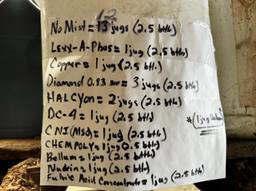 12
No Mist = 13 jugs (2.5 btl)
Levy-A-Phos = 1 jug (2.5 btl)
Copper = 1 jug (2.5 btl.)
Diamond 0.13 = 3 jugs (2.5 btl)
HALCYON = 2 jugs (2.5 btl)
DC-4 = 1 jug (2.5 btl)
CNI (MSO) = 1 jug (2.5 btl)
CHEMPOLY = 1 jug (2.5 btl)
Bellum = 1 jug (2.5 btl)
Nudrin = 1 jug (2.5 btl)
Fulvic Acid Concentrate = 1 jug (2.5 btl)
*(1 jug